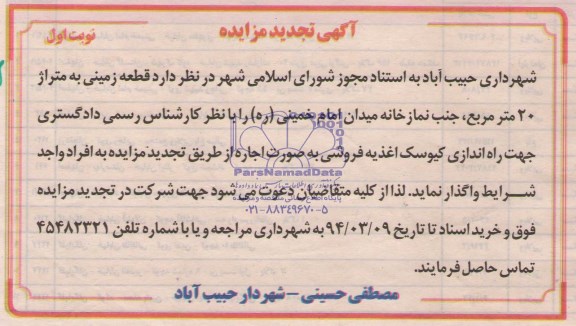 آگهی تجدید مزایده
نوبت اول
شهرداری حبیب آباد به استناد مجوز شورای اسلامی شهر در نظر دارد قطعه زمینی به متراژ
۲۰ متر مربع، جنب نمازخانه میدان امام خمینی (ره) را با نظر کارشناس رسمی دادگستری
جهت راه اندازی کیوسک اغذیه فروشی به صورت اجاره از طریق تجدید مزایده به افراد واجد
شرایط واگذار نماید. لذا از کلیه متقاضیان دعوت می شود جهت شرکت در تجدید مزایده
فوق و خرید اسناد تا تاریخ ۹۴/۰۳/۰۹ به شهرداری مراجعه و یا با شماره تلفن ۴۵۴۸۲۳۲۱
تماس حاصل فرمایند.
مصطفی حسینی – شهردار حبیب آباد
ParsNamadData
۰۲۱-۸۸۳۴۹۶۷۰-۵